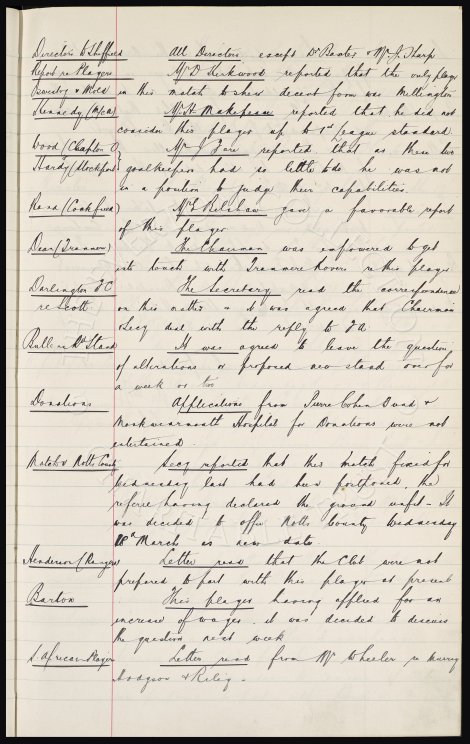 Directors to Sheffield All Directors except Dr Baxter & Mr J. Sharp
Report re Players Mr D. Kirkwood reported that the only player
Oswestry & Mold in this match to shew decent form was Millington
Kennedy (McA) Mr H. Makepeace reported that he did not
consider this player up to 1st League standard.
Wood (Clapton O) Mr J. Fare reported that as these two
Hardy (Stockport) goalkeepers had so little to do he was not
in a position to judge their capabilities.
Rand (Cockfield) Mr F. Belshaw gave a favorable report
of this player.
Dean (Tranmere) The Chairman was empowered to get
into touch with Tranmere Rovers re this player
Darlington FC The Secretary read the correspondence
re Scott on this matter & it was agreed that Chairman
Secy deal with the reply to FA.
Bullens Rd Stand It was agreed to leave the question
of alterations or proposed new stand over for
a week or two
Donations Applications from Cohen Fund &
Monkwearmouth Hospital for Donations were not
entertained
Match v Notts County Secy reported that this match fixed for
Wednesday last had been postponed, the
referee having declared the ground unfit. It
was decided to offer Notts County Wednesday
18th March as new date.
Henderson (Rangers) Letter read that the Club were not
prepared to part with this player at present
Barton This player having applied for an
increase of wages, it was decided to discuss
the question next week
S. African Player Letter read from Mr Wheeler re Murray
Hodgson & Riley.